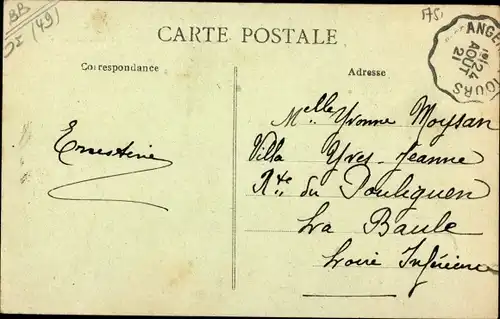 BB
(49)
175
CARTE POSTALE
Correspondance
Adresse
ANGE
TOURS
24
AOUT
21
Ernestine
Melle Yvonne Moysan
Villa Yves-Jeanne
Rte du Pouliguen
La Baule
Loire Inférieure